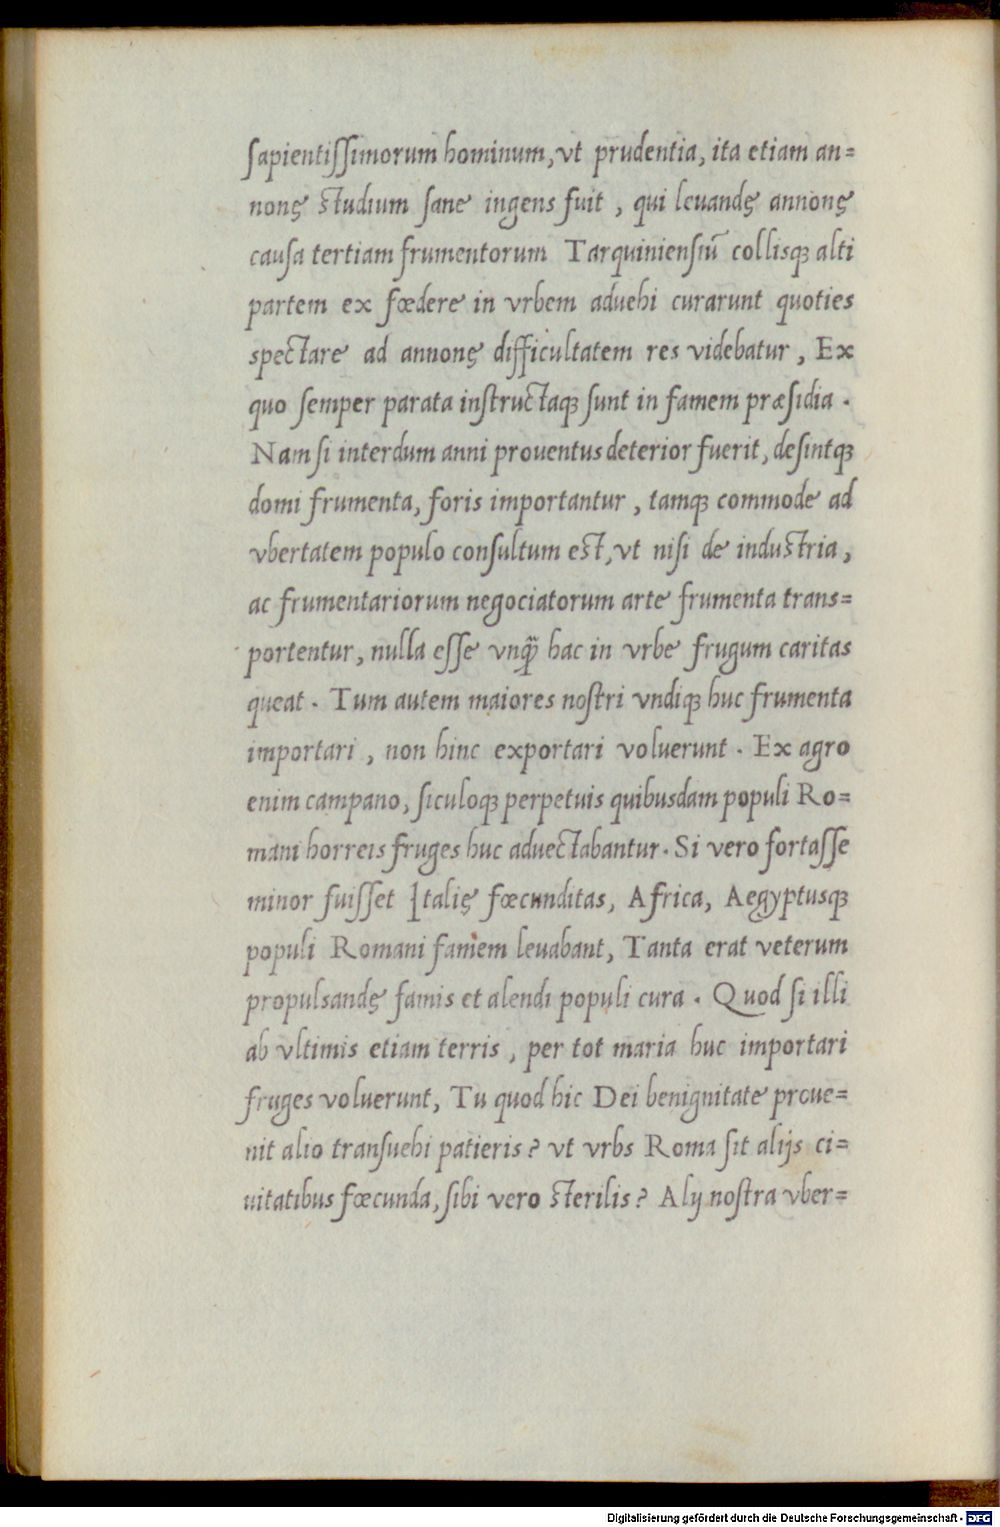 sapientissimorum hominum, vt prudentia, ita etiam an=
nonę studium sane ingens fuit, qui leuandę annonę
causa tertiam frumentorum Tarquiniensiũ collisqꝫ alti
partem ex fœdere in vrbem aduehi curarunt quoties
spectare ad annonę difficultatem res videbatur, Ex
quo semper parata instructaqꝫ sunt in famem præsidia.
Nam si interdum anni prouentus deterior fuerit, desintqꝫ
domi frumenta, foris importantur, tamqꝫ commode ad
vbertatem populo consultum est, vt nisi de industria,
ac frumentariorum negociatorum arte frumenta trans=
portentur, nulla esse vnq̃ hac in vrbe frugum caritas
queat. Tum autem maiores nostri vndiqꝫ huc frumenta
importari, non hinc exportari voluerunt. Ex agro
enim campano, siculoqꝫ perpetuis quibusdam populi Ro=
mani horreis fruges huc aduectabantur. Si vero fortasse
minor fuisset Italię fœcunditas, Africa, Aegyptusqꝫ
populi Romani famem leuabant, Tanta erat veterum
propulsandę famis et alendi populi cura. Quod si illi
ab vltimis etiam terris, per tot maria huc importari
fruges voluerunt, Tu quod hic Dei benignitate proue=
nit alio transuehi patieris? vt vrbs Roma sit alijs ci=
uitatibus fœcunda, sibi vero sterilis? Alij nostra vber=
Digitalisierung gefördert durch die Deutsche Forschungsgemeinschaft - DFG